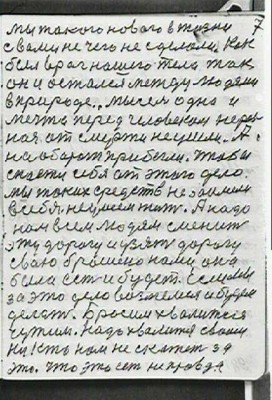 7
мы такого нового в жизни
с вами не чего не сделали. Как
был врач нашего тела так
он и остался между людями
в природе. мысля одна и
мечта перед человеком
ная от смерти не ушли. А.
на оборот прибегли. Чтобы
спасти себя от этого дело.
мы таких средств не заимели
в себя. не умеем жить. А надо
нам всем людям сменить
эту дорогу и взять дорогу
свою брошено нами она
была есть и будет. Если мы
за это дело возмемся и будем
делать. бросим хвалится
чужим. надо хвалится своим
ни кто нам не скажет за
это. что это есть не правда